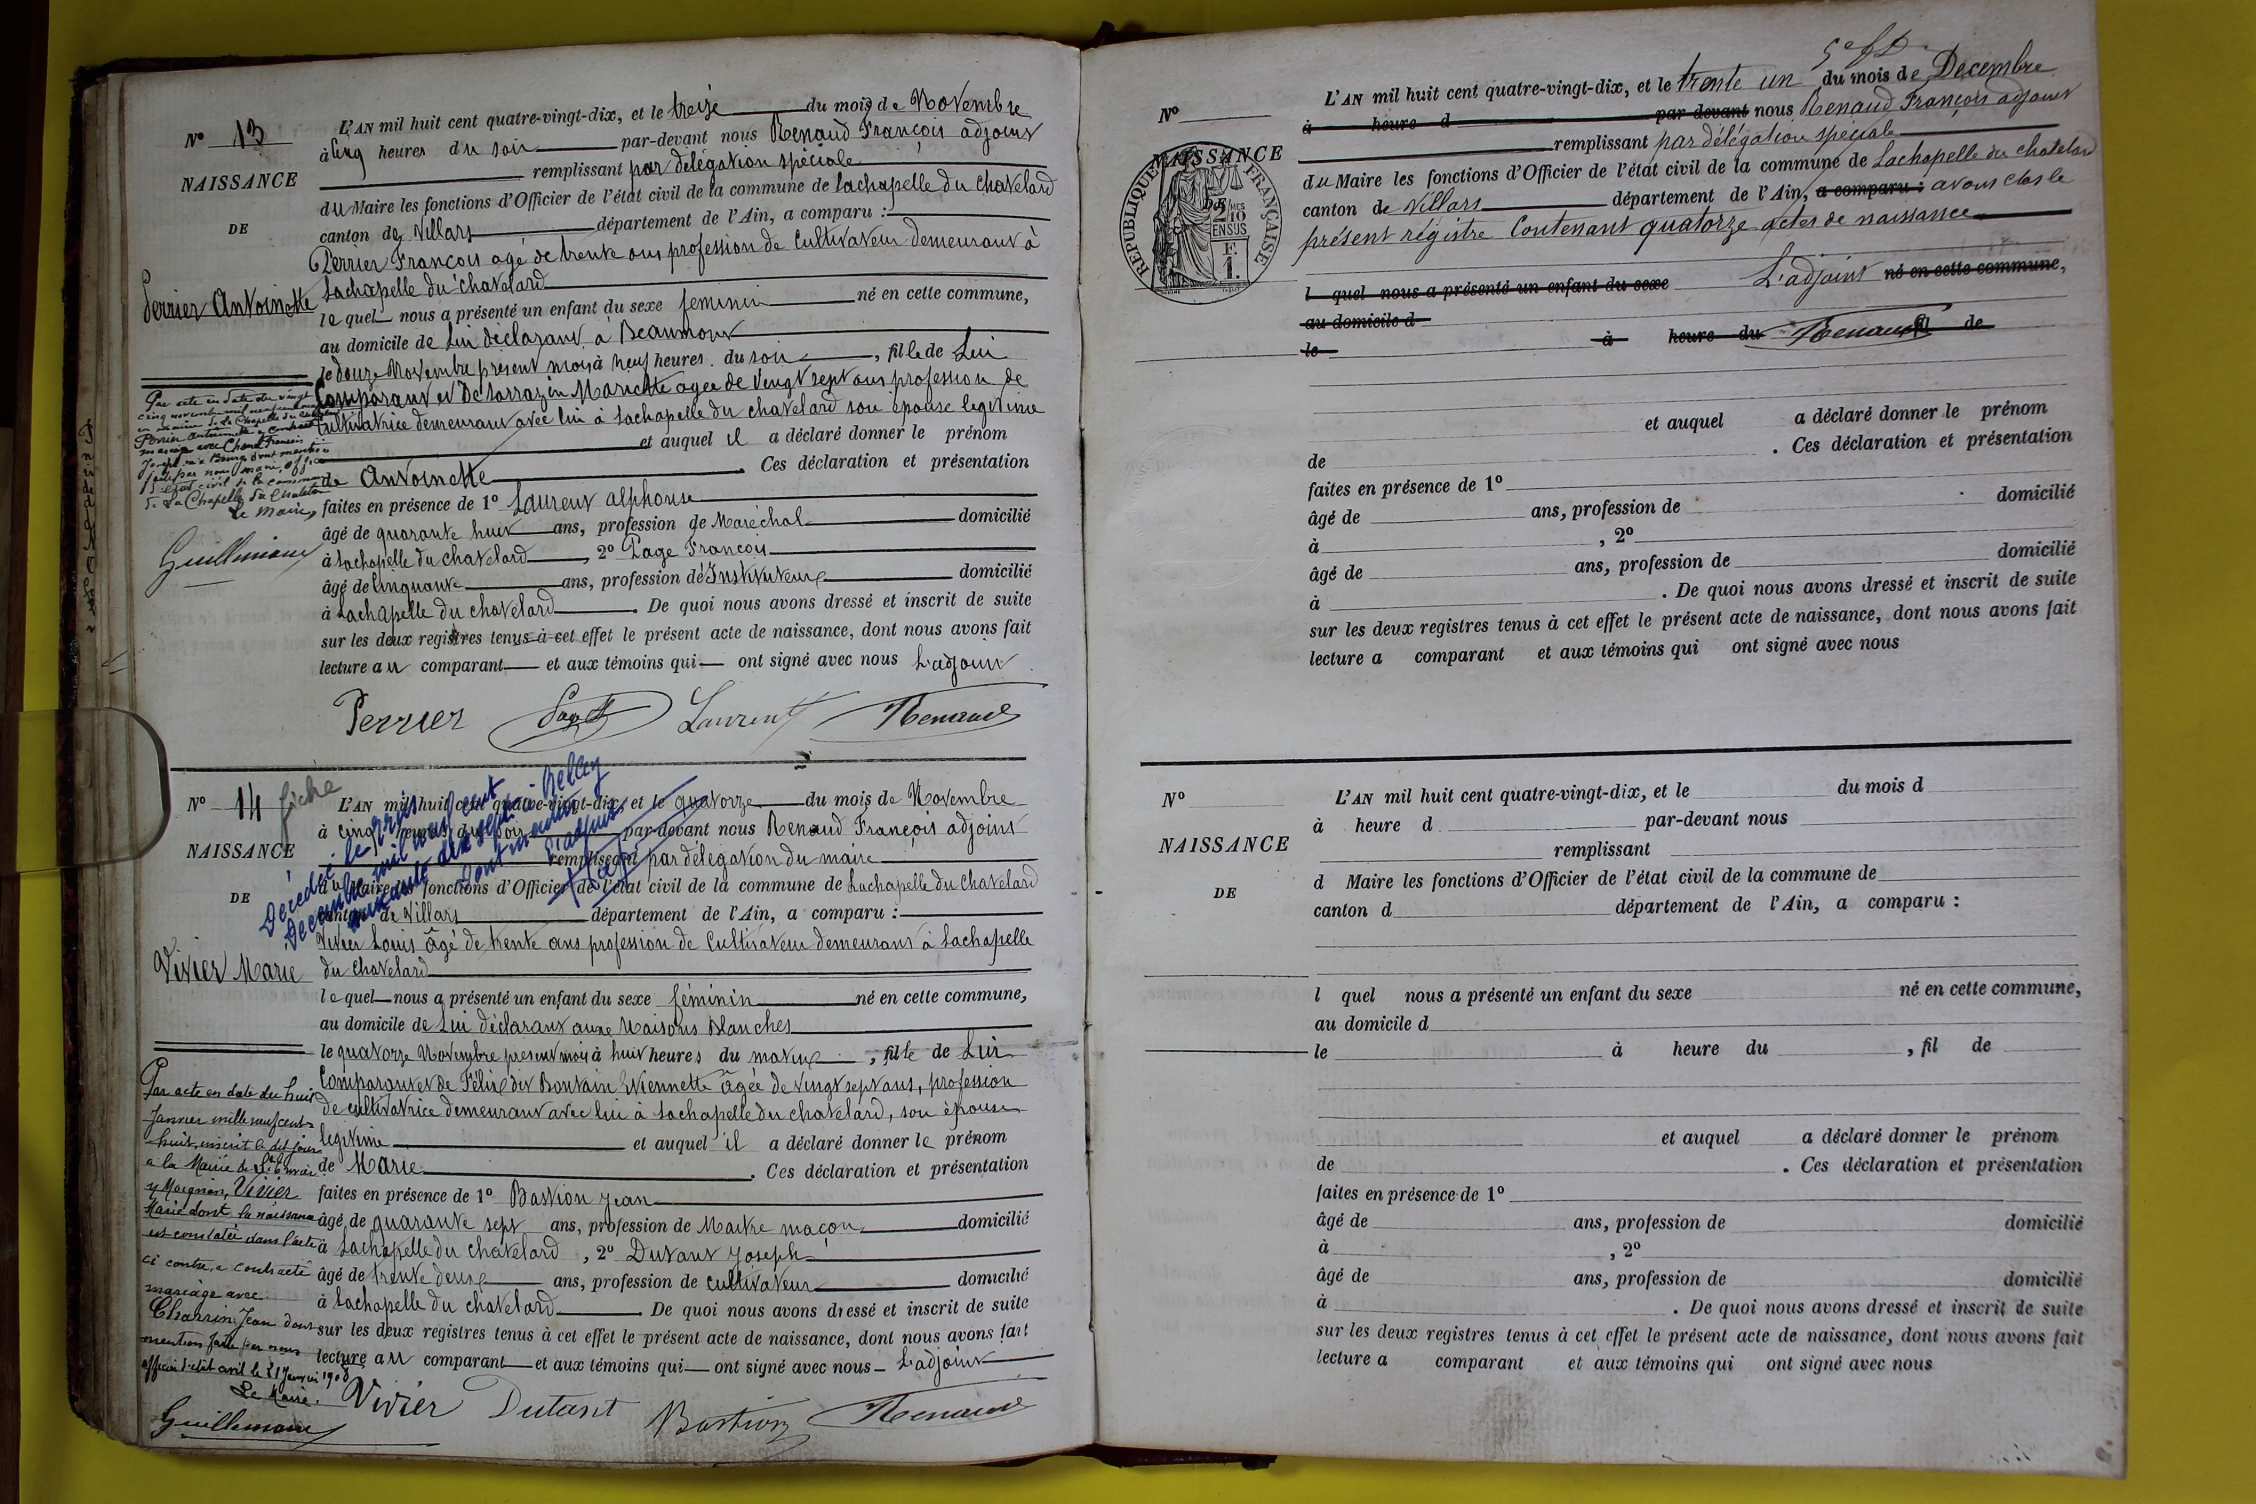 N° 13
NAISSANCE
DE
Perrier Antoinette
L'AN mil huit cent quatre-vingt-dix, et le treize du mois de Novembre
à Cinq heures du soir par-devant nous Renaud François adjoint
remplissant par délégation spéciale
du Maire les fonctions d'Officier de l'état civil de la commune de Lachapelle du Chatelard
canton de Villars département de l'Ain, a comparu :
Perrier François agé de trente ans profession de Cultivateur demeurant à
Lachapelle du chatelard
lequel nous a présenté un enfant du sexe féminin né en cette commune,
au domicile de Lui déclarant à Beaumont
le douze Novembre présent mois à neuf heures du soir, fille de Lui
Comparant et De Marie agée de Vingt sept ans profession de
Cultivatrice demeurant avec lui à Lachapelle du chatelard son épouse legitime
et auquel il a déclaré donner le prénom
de Antoinette. Ces déclaration et présentation
faites en présence de 1° Laurent alphonse
âgé de quarante huit ans, profession de Maréchal domicilié
à Lachapelle du chatelard, 2° Page François
âgé de Cinquante ans, profession d'Instituteur domicilié
à Lachapelle du chatelard. De quoi nous avons dressé et inscrit de suite
sur les deux registres tenus à cet effet le présent acte de naissance, dont nous avons fait
lecture au comparant et aux témoins qui ont signé avec nous L'adjoint
Perrier Page Laurent Renaud
Par acte en date du vingt
cinq novembre mil neuf cent
en mairie de La Chapelle du Chatelard
Perrier Antoinette a contracté
mariage avec Francis
Joseph à Bourg dont mention
faite par nous maire, officier
d'état civil de la commune
de La Chapelle du Chatelard
Le Maire,
Guillemaud
N° 14 fiché
NAISSANCE
DE
Vivier Marie
L'AN mil huit cent quatre-vingt-dix, et le quatorze du mois de Novembre
à Cinq heures du soir par-devant nous Renaud François adjoint
remplissant par délégation du maire
du Maire les fonctions d'Officier de l'état civil de la commune de Lachapelle du Chatelard
canton de Villars département de l'Ain, a comparu :
Vivier Louis âgé de trente ans profession de Cultivateur demeurant à Lachapelle
du Chatelard
lequel nous a présenté un enfant du sexe féminin né en cette commune,
au domicile de Lui déclarant aux Maisons Blanches
le quatorze Novembre present mois à huit heures du matin, fille de Lui
Comparant et de Félix dit Bontain Etiennette âgée de vingt sept ans, profession
de cultivatrice demeurant avec lui à Lachapelle du chatelard, son épouse
legitime et auquel il a déclaré donner le prénom
de Marie. Ces déclaration et présentation
faites en présence de 1° Bastion Jean
âgé de quarante sept ans, profession de Maitre maçon domicilié
à Lachapelle du chatelard, 2° Dutant Joseph
âgé de trente deux ans, profession de cultivateur domicilié
à Lachapelle du chatelard. De quoi nous avons dressé et inscrit de suite
sur les deux registres tenus à cet effet le présent acte de naissance, dont nous avons fait
lecture au comparant et aux témoins qui ont signé avec nous L'adjoint
Vivier Dutant Bastion Renaud
Décédée le
Decembre mil neuf cent
soixante dix sept à Belley
Dont mention
Par acte en date du huit
Janvier mille neuf cent
huit, inscrit le dit jour
a la Mairie de
Vivier
Marie dont la naissance
est constatée dans l'acte
ci contre, a contracté
mariage avec
Charrin Jean dont
mention faite par nous
officier d'état civil le 21 Janvier 1908
Le Maire.
Guillemaud
N°
NAISSANCE
DE
RÉPUBLIQUE FRANÇAISE
2/10 EN SUS
F. 1.
L'AN mil huit cent quatre-vingt-dix, et le trente un du mois de Décembre
à heure d par-devant nous Renaud François adjoint
remplissant par délégation spéciale
du Maire les fonctions d'Officier de l'état civil de la commune de Lachapelle du chatelard
canton de Villars département de l'Ain, a comparu : avons clos le
présent régistre Contenant quatorze actes de naissance
L'adjoint né en cette commune,
l quel nous a présenté un enfant du sexe
au domicile d
le à heure du Renaud fil de
et auquel a déclaré donner le prénom
de . Ces déclaration et présentation
faites en présence de 1°
âgé de ans, profession de domicilié
à , 2°
âgé de ans, profession de domicilié
à . De quoi nous avons dressé et inscrit de suite
sur les deux registres tenus à cet effet le présent acte de naissance, dont nous avons fait
lecture a comparant et aux témoins qui ont signé avec nous
N°
NAISSANCE
DE
L'AN mil huit cent quatre-vingt-dix, et le du mois d
à heure d par-devant nous
remplissant
d Maire les fonctions d'Officier de l'état civil de la commune de
canton d département de l'Ain, a comparu :
l quel nous a présenté un enfant du sexe né en cette commune,
au domicile d
le à heure du , fil de
et auquel a déclaré donner le prénom
de . Ces déclaration et présentation
faites en présence de 1°
âgé de ans, profession de domicilié
à , 2°
âgé de ans, profession de domicilié
à . De quoi nous avons dressé et inscrit de suite
sur les deux registres tenus à cet effet le présent acte de naissance, dont nous avons fait
lecture a comparant et aux témoins qui ont signé avec nous